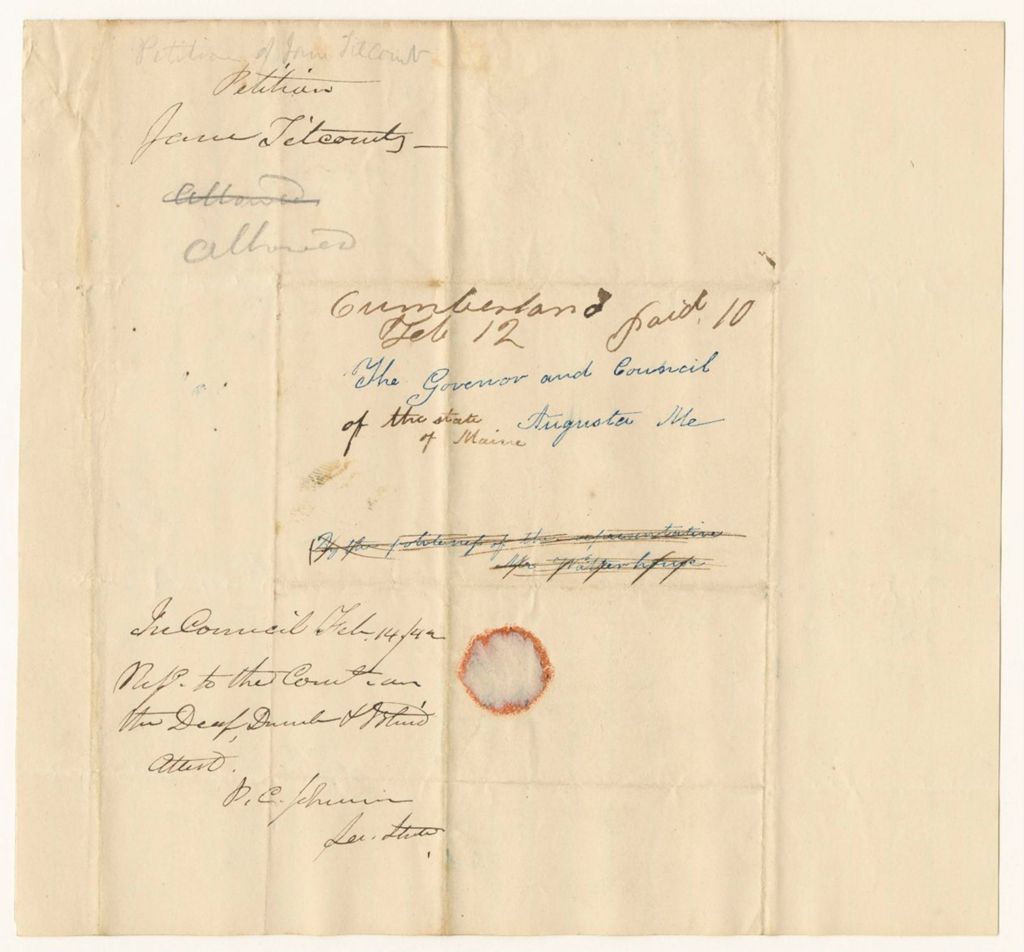 Petition of Jane Titcomb
Petition
Jane Titcomb
allowed
allowed
Cumberland paid. 10
Feb 12
The Govenor and Council
of the state Augusta Me
of Maine
To the politeness of the representative
Mr
In Council Feb 14/42
Ref. to the Comt. on
the Deaf, Dumb & Blind
Attest.
P. C. Johnson
Sec. State.